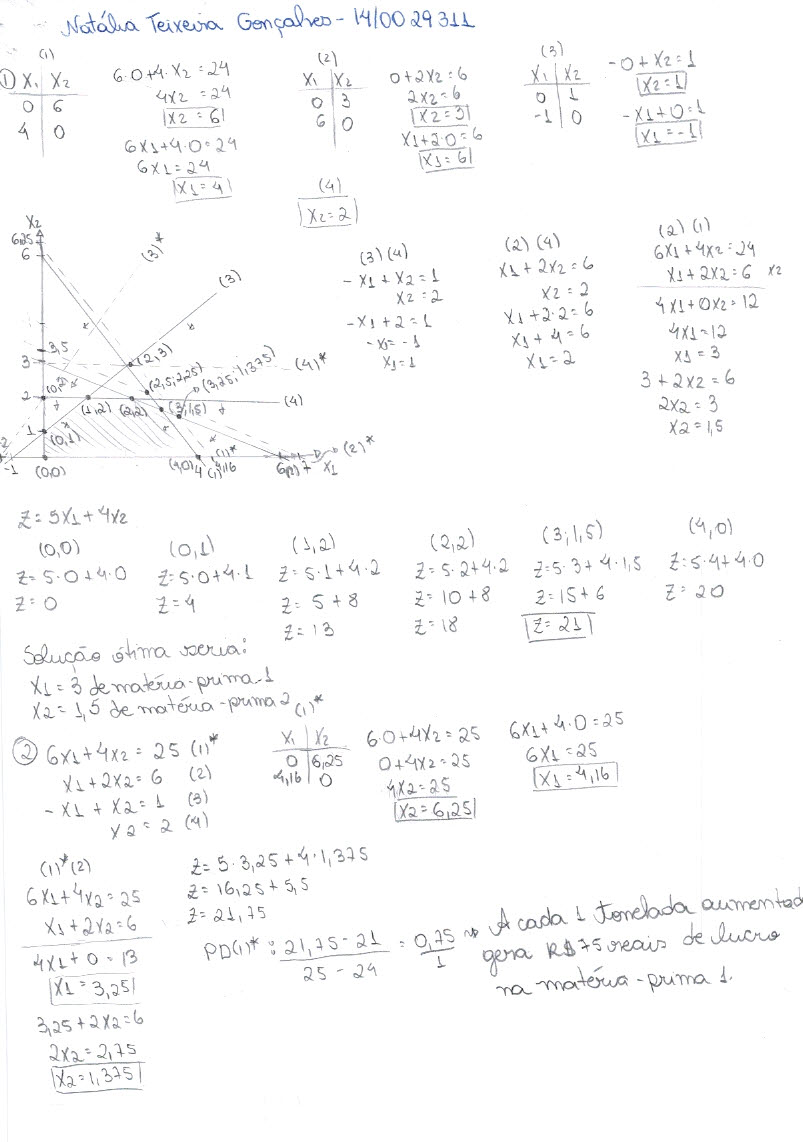 Natália Teixeira Gonçalves - 14/0029311
(1)
① X1 X2
0 6
4 0
6·0+4·X2=24
4X2=24
X2=6
6X1+4·0=24
6X1=24
X1=4
(2)
X1 X2
0 3
6 0
0+2X2=6
2X2=6
X2=3
X1+2·0=6
X1=6
(3)
X1 X2
0 1
-1 0
-0+X2=1
X2=1
-X1+0=1
X1=-1
(4)
X2=2
X2
6,25
6
3,5
3
2
1
-2
-1
(3)*
(3)
(2,3)
(4)*
(2,5;2,25)
(3,25;1,375)
(4)
(0,2)
(1,2)
(2,2)
(3;1,5)
(0,1)
(0,0)
(4,0) 4
(1)
(1)*
4,16
6 (2) 7
X1
(2)*
(3) (4)
-X1+X2=1
X2=2
-X1+2=1
-X1=-1
X1=1
(2) (4)
X1+2X2=6
X2=2
X1+2·2=6
X1+4=6
X1=2
(2) (1)
6X1+4X2=24
X1+2X2=6 x2
4X1+0X2=12
4X1=12
X1=3
3+2X2=6
2X2=3
X2=1,5
Z=5X1+4X2
(0,0)
Z=5·0+4·0
Z=0
(0,1)
Z=5·0+4·1
Z=4
(1,2)
Z=5·1+4·2
Z=5+8
Z=13
(2,2)
Z=5·2+4·2
Z=10+8
Z=18
(3;1,5)
Z=5·3+4·1,5
Z=15+6
Z=21
(4,0)
Z=5·4+4·0
Z=20
Solução ótima seria:
X1=3 de matéria-prima 1
X2=1,5 de matéria-prima 2
② 6X1+4X2=25 (1)*
X1+2X2=6 (2)
-X1+X2=1 (3)
X2=2 (4)
(1)*
X1 X2
0 6,25
4,16 0
6·0+4X2=25
0+4X2=25
4X2=25
X2=6,25
6X1+4·0=25
6X1=25
X1=4,16
(1)*(2)
6X1+4X2=25
X1+2X2=6
4X1+0=13
X1=3,25
3,25+2X2=6
2X2=2,75
X2=1,375
Z=5·3,25+4·1,375
Z=16,25+5,5
Z=21,75
PD(1)*: 21,75-21 = 0,75
25-24 1
A cada 1 tonelada aumentad
gera R$75 reais de lucro
na matéria-prima 1.